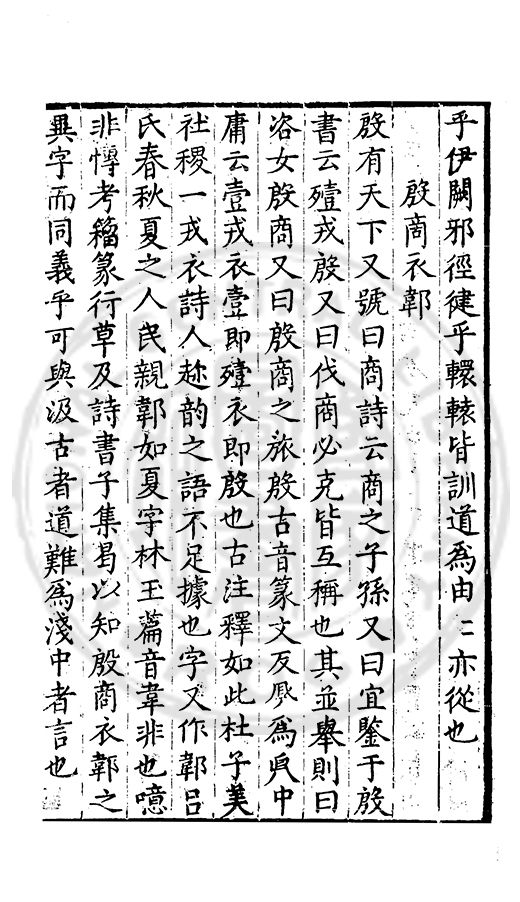 乎伊闕邪徑徤乎轘轅皆訓道為由〻亦從也
殷商衣鄣
殷有天下又號曰商詩云商之子孫又曰宜鑒于殷
書云殪戎殷又曰伐商必克皆互稱也其並舉則曰
咨女殷商又曰殷商之旅殷古音篆文反㐆為㐆中
庸云壹戎衣壹即殪衣即殷也古注釋如此杜子美
社稷一戎衣詩人趂韵之語不足據也字又作鄣吕
氏春秋夏之人民親鄣如夏字林王篇音韋非也噫
非愽考籀篆行草及詩書子集曷以知殷商衣鄣之
異字而同義乎可與汲古者道難為淺中者言也